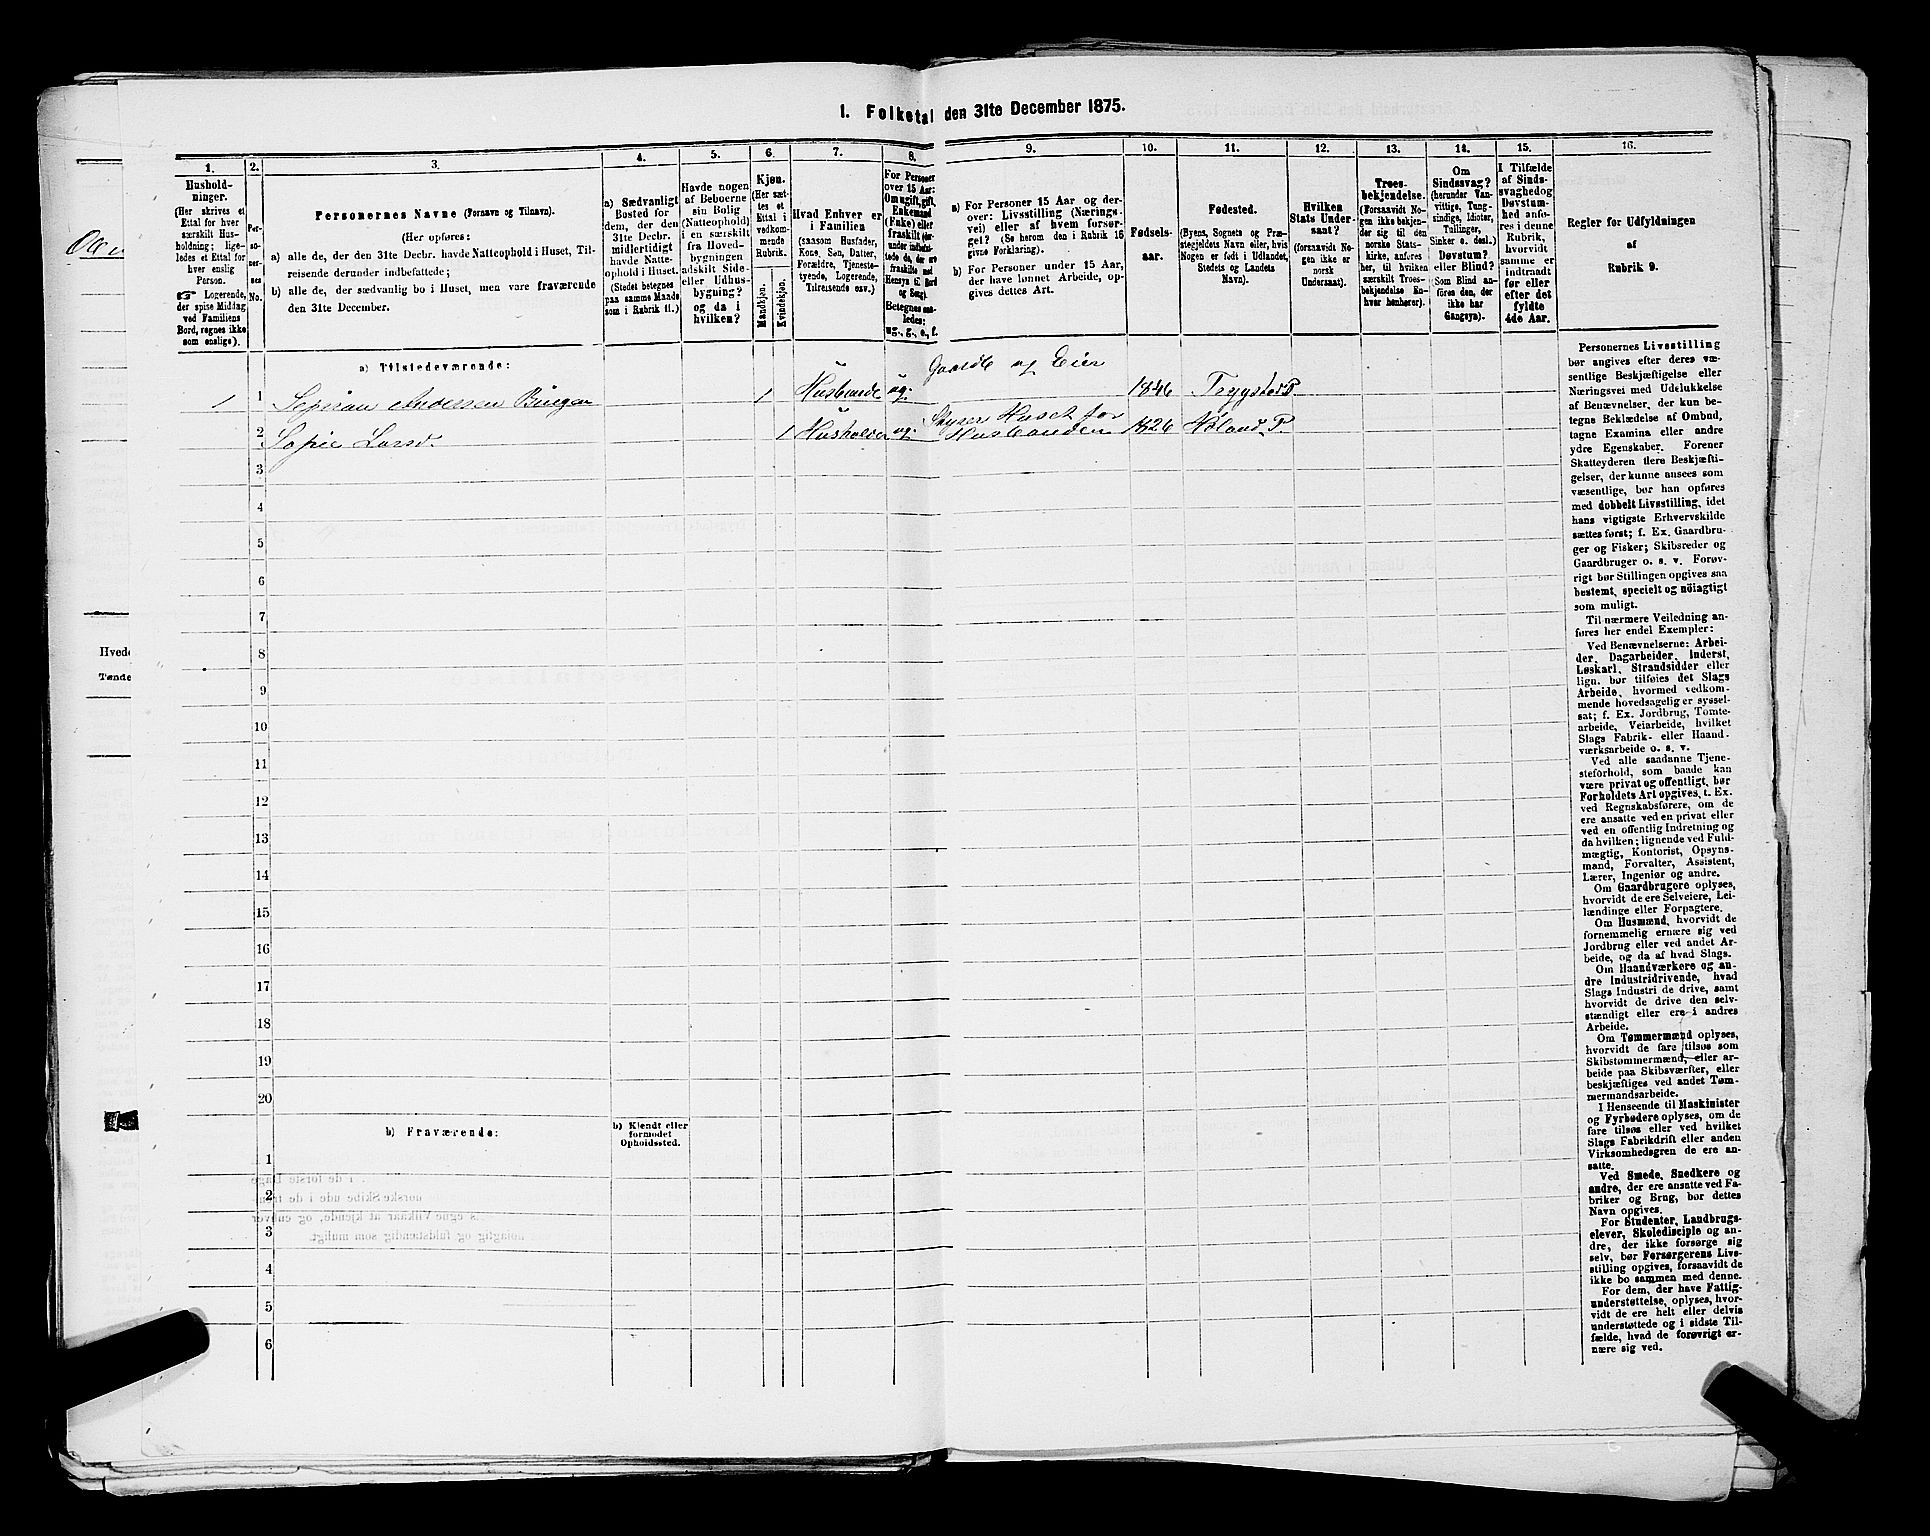 I. Folketal den 31te December 1875.
1.
Hushold-
ninger.
(Her skrives et
Ettal for hver
særskilt Hus-
holdning; lige-
ledes et Ettal for
hver enslig
Person.
☞ Logerende,
der spise Middag
ved Familiens
Bord, regnes ikke
som enslige).
2.
Per-
so-
ner-
nes
No.
3.
Personernes Navne (Fornavn og Tilnavn).
(Her opføres:
a) alle de, der den 31te Decbr. havde Natteophold i Huset, Til-
reisende derunder indbefattede;
b) alle de, der sædvanlig bo i Huset, men vare fraværende
den 31te December.
4.
a) Sædvanligt
Bosted for
dem, der den
31te Decbr.
midlertidigt
havde Natte-
ophold i Huset.
(Stedet betegnes
paa samme Maade
som i Rubrik 11.)
5.
Havde nogen
af Beboerne
sin Bolig
(Natteophold)
i en særskilt
fra Hoved-
bygningen
adskilt Side-
eller Udhus-
bygning?
og da i
hvilken?
6.
Kjøn.
(Her sæt-
tes et
Ettal i
vedkom-
mende
Rubrik.
Mandkjøn.
Kvindekjøn.
7.
Hvad Enhver er
i Familien
(saasom Husfader,
Kone, Søn, Datter,
Forældre, Tjeneste-
tyende, Logerende,
Tilreisende osv.)
8.
For Personer
over 15 Aar:
Om ugift, gift,
Enkemand
(Enke) eller
fraskilt
Betegnes saa-
ledes:
ug., g., e., f.
9.
a) For Personer 15 Aar og der-
over: Livsstilling (Nærings-
vei) eller af hvem forsør-
get? (Se herom den i Rubrik 16
givne Forklaring).
b) For Personer under 15 Aar,
der have lønnet Arbeide, op-
gives dettes Art.
10.
Fødsels-
aar.
11.
Fødested.
(Byens, Sognets og Præ-
stegjeldets Navn eller, hvis
Nogen er født i Udlandet,
Stedets og Landets
Navn).
12.
Hvilken
Stats Under-
saat?
(forsaavidt No-
gen ikke er
norsk
Undersaat).
13.
Troes-
bekjendelse.
(Forsaavidt No-
gen ikke bekjen-
der sig til den
norske Stats-
kirke, anføres
her, til hvilken
særskilt Troes-
bekjendelse En-
hver henhører).
14.
Om
Sindssvag?
(herunder Van-
vittige, Tung-
sindige, Idioter,
Tullinger,
Sinker o. desl.)
Døvstum?
eller Blind?
Som Blind an-
føres den, der
ikke har
Gangsyn).
15.
I Tilfælde
af Sinds-
svaghed og
Døvstum-
hed anfø-
res i denne
Rubrik,
hvorvidt
samme er
indtraadt
før eller
efter det
fyldte
4de Aar.
16.
Regler for Udfyldningen
af
Rubrik 9.
a) Tilstedeværende:
Gaardb og Eier
1 1 Andersen 1 Husbonde ug. 1846 Trygstad P.
Styrer Huset for
2 Sofie Larsd. 1 Husholder ug. Husbonden 1826 Høland P.
3
4
5
6
7
8
9
10
11
12
13
14
15
16
17
18
19
20
b) Fraværende:
b) Kjendt eller
formodet
Opholdssted.
1
2
3
4
5
6
Personernes Livsstilling
bør angives efter deres væ-
sentlige Beskjæftigelse eller
Næringsvei med Udelukkelse
af Benævnelser, der kun be-
tegne Beklædelse af Ombud,
tagne Examina eller andre
ydre Egenskaber. Forener
Skatteyderen flere Beskjæfti-
gelser, der kunne ansees som
væsentlige, bør han opføres
med dobbelt Livsstilling, idet
hans vigtigste Erhvervskilde
sættes først; f. Ex. Gaardbru-
ger og Fisker; Skibsreder og
Gaardbruger o. s. v. Forøv-
rigt bør Stillingen opgives saa
bestemt, specielt og nöiagtigt
som muligt.
Til nærmere Veiledning an-
føres her endel Exempler:
Ved Benævnelserne: Arbei-
der, Dagarbeider, Inderst,
Løskarl, Strandsidder eller
lign. bør tilføies det Slags
Arbeide, hvormed vedkom-
mende hovedsagelig er syssel-
sat; f. Ex. Jordbrug, Tomte-
arbeide, Veiarbeide, hvilket
Slags Fabrik- eller Haand-
værksarbeide o. s. v.
Ved alle saadanne Tjene-
steforhold, som baade kan
være privat og offentligt, bør
Forholdets Art opgives, t. Ex.
ved Regnskabsførere, om de
ere ansatte ved en privat eller
ved en offentlig Indretning og
da hvilken; lignende ved Fuld-
mægtig, Kontorist, Opsyns-
mand, Forvalter, Assistent,
Lærer, Ingeniør og andre.
Om Gaardbrugere oplyses,
hvorvidt de ere Selveiere, Lei-
lændinge eller Forpagtere.
Om Husmænd, hvorvidt de
fornemmelig ernære sig ved
Jordbrug eller ved andet Ar-
beide, og da af hvad Slags.
Om Haandværkere og an-
dre Industridrivende, hvad
Slags Industri de drive, samt
hvorvidt de drive den selv-
stændigt eller ere i andres
Arbeide.
Om Tømmermænd oplyses,
hvorvidt de fare tilsøs som
Skibstømmermænd, eller ar-
beide paa Skibsværfter, eller
beskjæftiges ved andet Tøm-
mermandsarbeide.
I Henseende til Maskinister
og Fyrbødere oplyses, om de
fare tilsøs eller ved hvilket
Slags Fabrikdrift eller anden
Virksomhedsgren de ere an-
satte.
Ved Smede, Snedkere og
andre, der ere ansatte ved Fa-
briker og Brug, bør dettes
Navn opgives.
For Studenter, Landbrugs-
elever, Skoledisciple og an-
dre, der ikke forsørge sig
selv, bør Forsørgerens Livs-
stilling opgives, forsaavidt de
ikke bo sammen med denne.
For dem, der have Fattig-
understøttelse, oplyses, hvor-
vidt de ere helt eller delvis
understøttede og i sidste Til-
fælde, hvad de forøvrigt er-
nære sig ved.
Hvede
Tønde